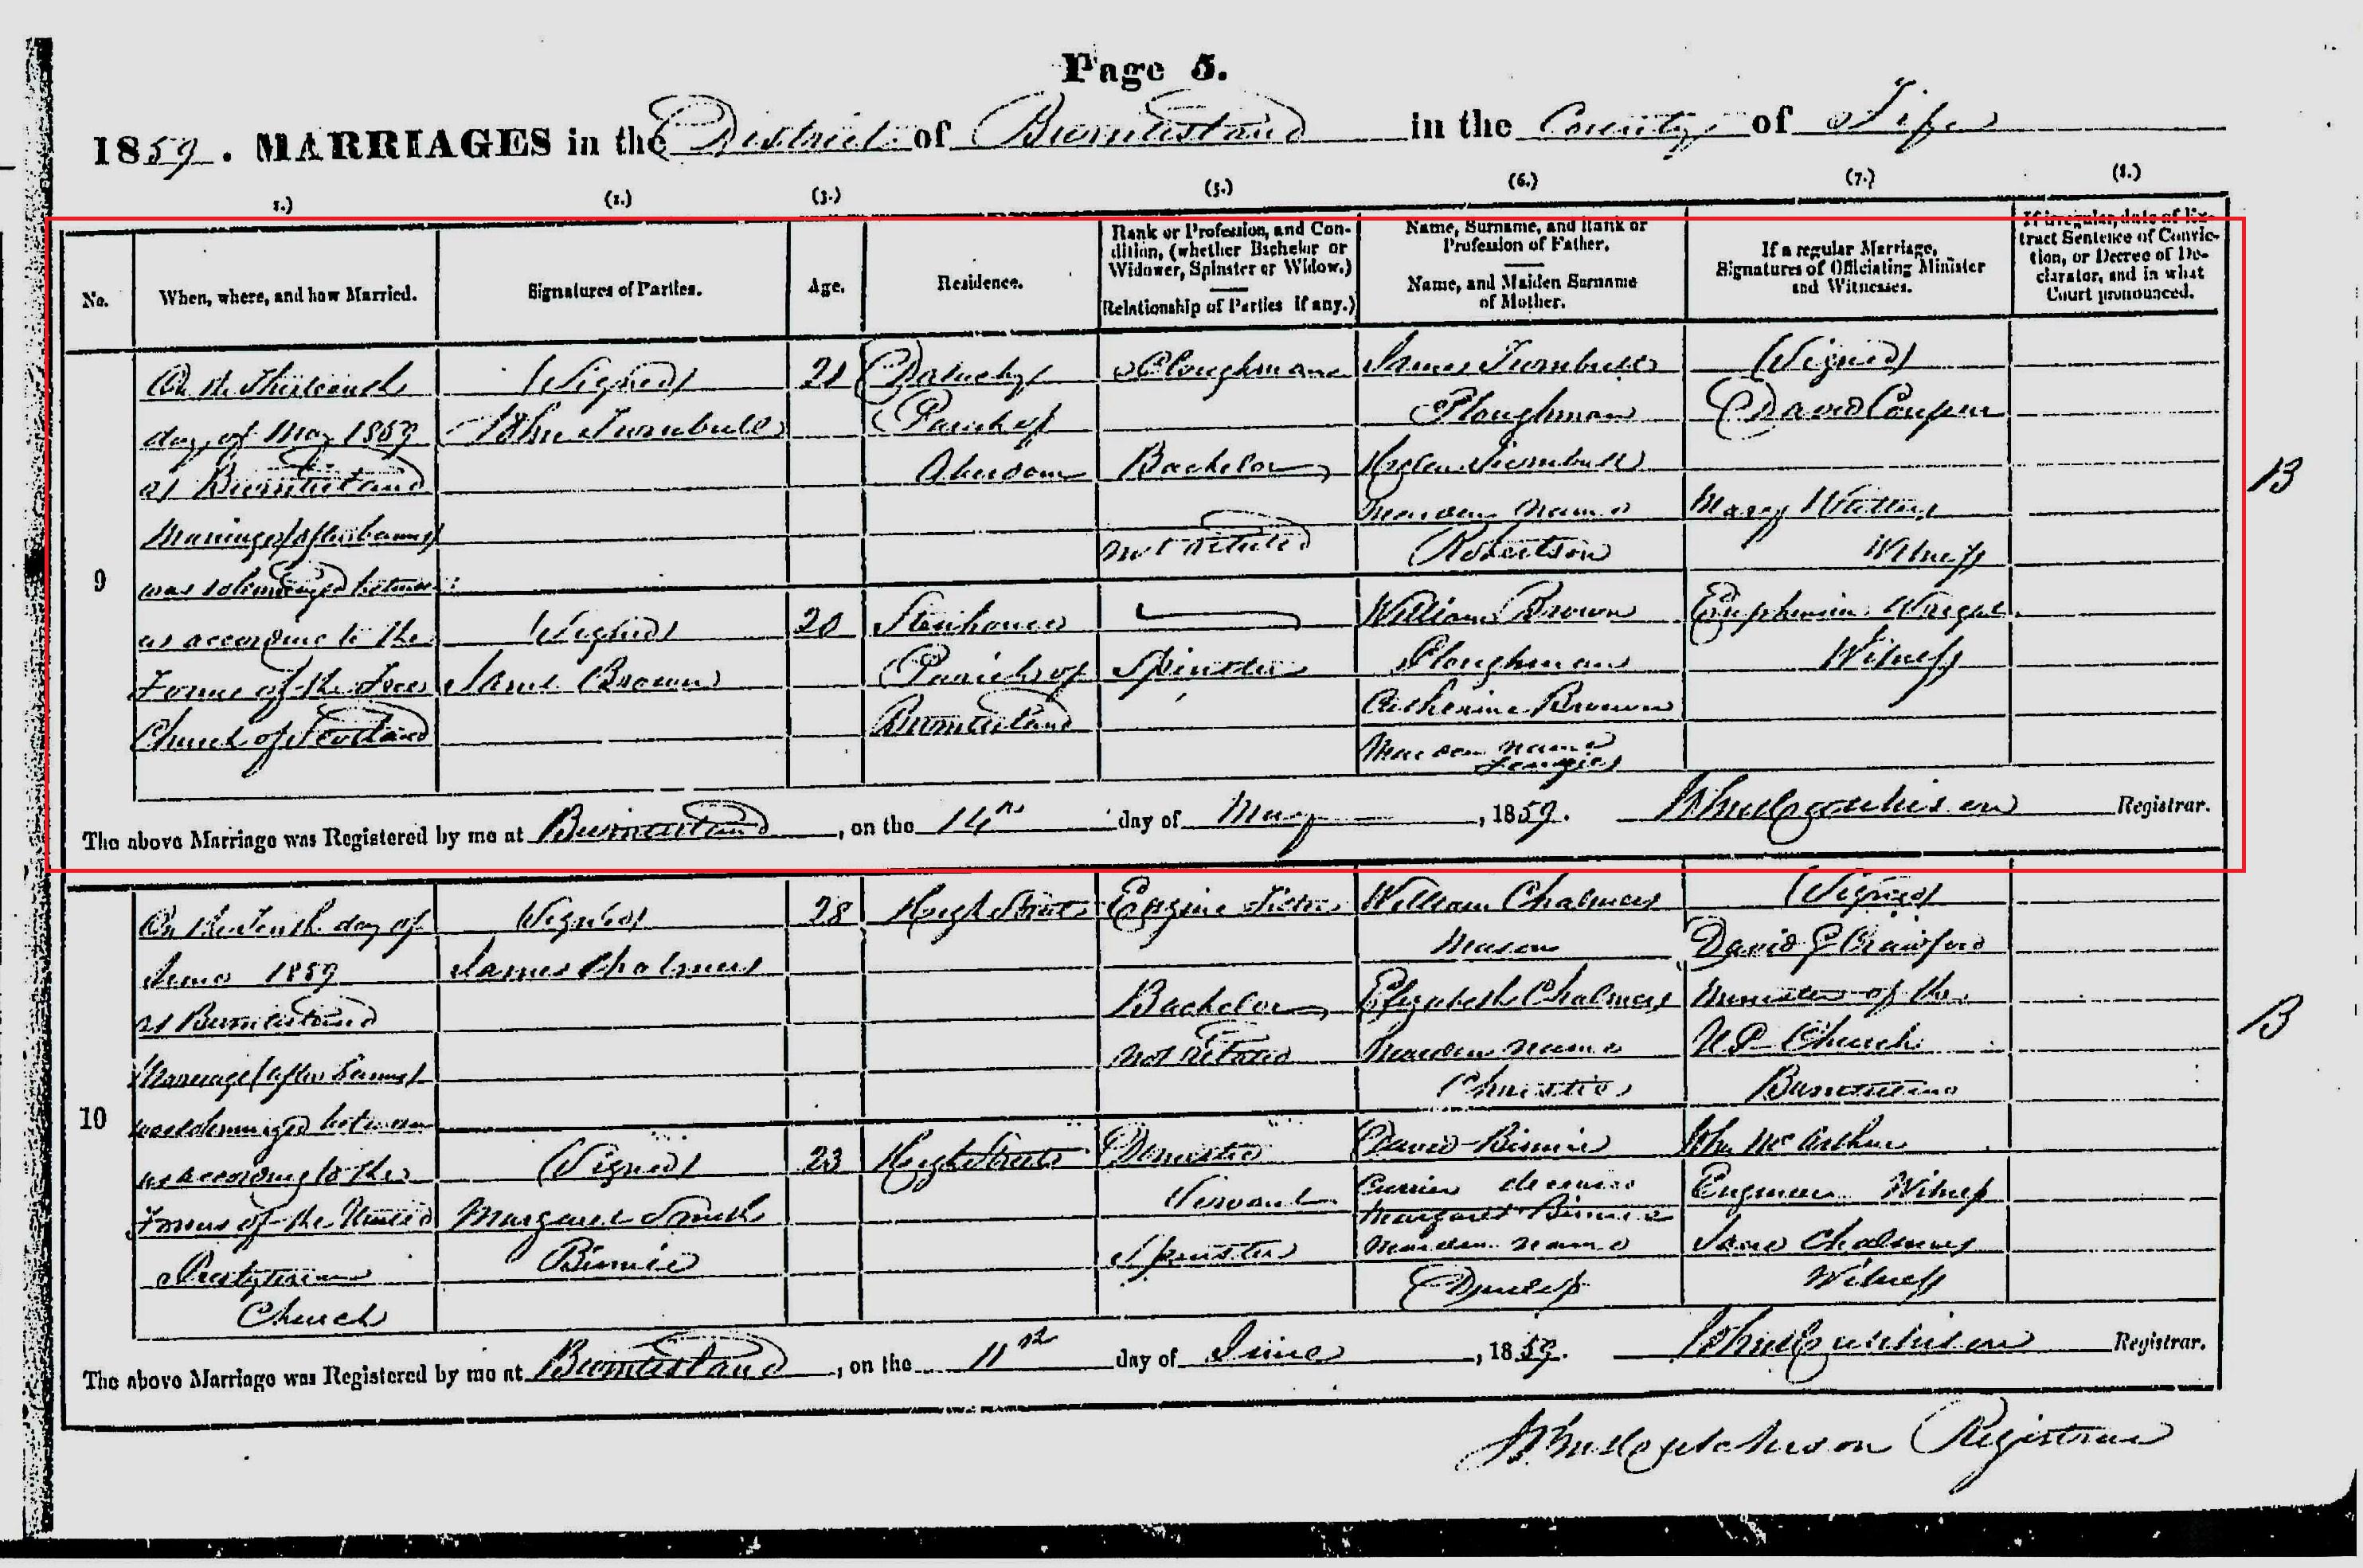 Page 5.
1859. MARRIAGES in the District of Burntisland in the County of Fife
1.) (2.) (3.) (5.) (6.) (7.) (8.)
No.
When, where, and how Married.
Signatures of Parties.
Age.
Residence.
Rank or Profession, and Con-
dition, (whether Bachelor or
Widower, Spinster or Widow.)
Relationship of Parties if any.)
Name, Surname, and Rank or
Profession of Father.
Name, and Maiden Surname
of Mother.
If a regular Marriage,
Signatures of Officiating Minister
and Witnesses.
If irregular, date of Ex-
tract Sentence of Convic-
tion, or Decree of De-
clarator, and in what
Court pronounced.
9
On the Thirteenth
day of May 1859
at Burntisland
Marriage (after banns)
was solemnized between
us according to the
Forms of the Free
Church of Scotland
(Signed)
John Turnbull
(Signed)
Jane Brown
21
20
Parish of
Aberdour
Stenhouse
Parish of
Burntisland
Ploughman
Bachelor
not related
Spinster
James Turnbull
Ploughman
Helen Turnbull
maiden name
Robertson
William Brown
Ploughman
Catherine Brown
Maiden name
(Signed)
David Couper
Mary
Witness
Euphemia Wright
Witness
B
The above Marriage was Registered by me at Burntisland, on the 14th day of May, 1859. John Hutchison Registrar.
10
On the Tenth day of
June 1859
at Burntisland
Marriage (after banns)
was solemnized between
us according to the
Forms of the United
Presbyterian
Church
(Signed)
James Chalmers
(Signed)
Margaret Smith
Binnie
28
23
High Street
High Street
Engine Fitter
Bachelor
not related
Domestic
Servant
Spinster
William Chalmers
Mason
Elizabeth Chalmers
maiden name
Christie
David Binnie
Currier deceased
Margaret Binnie
Maiden name
Dunlop
(Signed)
David G Crawford
Minister of the
U P Church
Burntisland
John McArthur
Engineer Witness
Jane Chalmers
Witness
B
The above Marriage was Registered by me at Burntisland, on the 11th day of June, 1859. John Hutchison Registrar.
John Hutchison Registrar